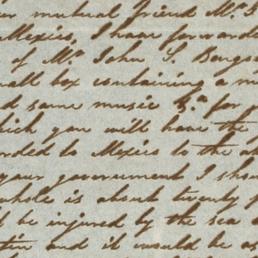 our mutual friend Mr. S
Mexico, I have forwarde
of Mr. John S. Burgo
mall box containing a m
d some music &a for
hich you will have the
rded to Mexico to the a
your government I shou
whole is about twenty f
be injured by the sea
and it would be as